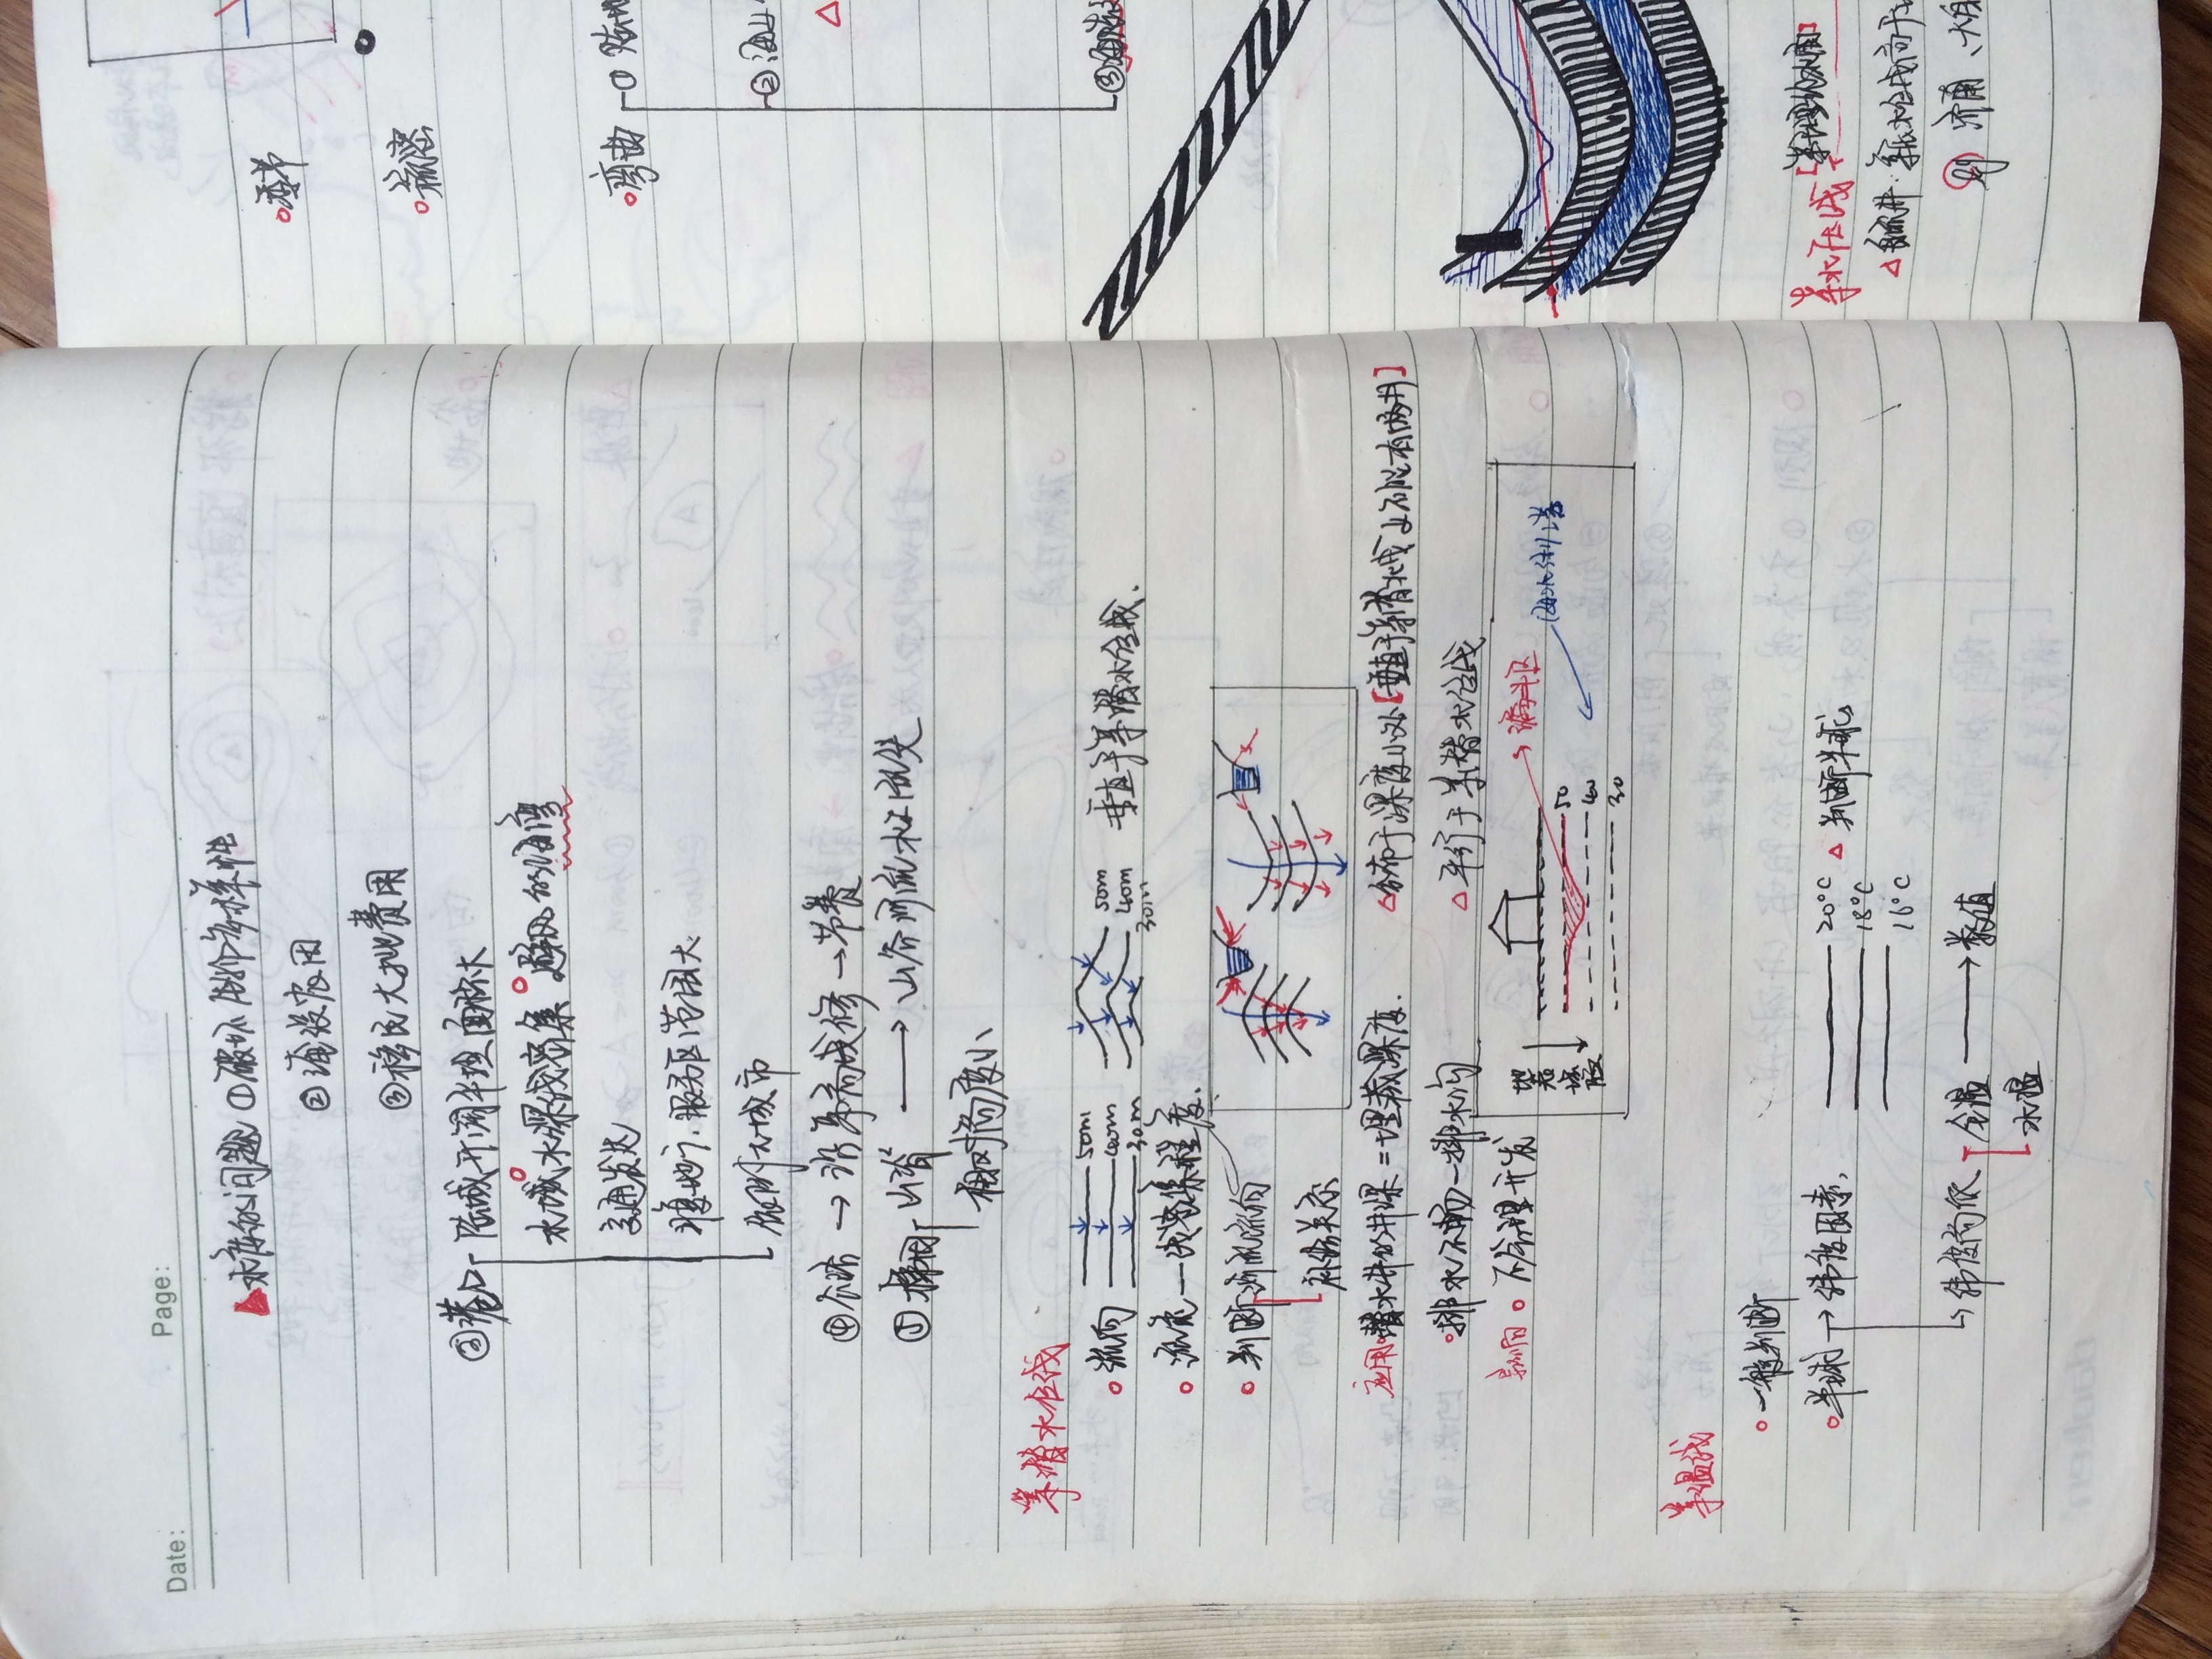 Date: Page:
水库的问题 ①破坏生物多样性
②淹没农田
③移民大批费用
③港口 陆域开阔平坦面积大
水域水深线密集 避风的海湾
交通发达
腹地广,服务区范围大
依附大城市
④公路 → 沿等高线修 → 节费
⑤梯田 山脊 → 山谷河流水土流失
相对高度小
等潜水位线
流向 50m 40m 30m 50m 40m 30m 垂直于等潜水位线.
流速—线密集程度.
判断 河流流向
补给关系
应用 潜水井的井深=埋藏深度. △分布于深度小处【垂直于等潜水线上不能有两井】
排水不畅—排水沟 △平行于等潜水位线
影响 不合理开发
地表 漏斗区
50
40
30
等温线
一般判断
半球 → 纬度因素, 20°C △判断半球
18°C
16°C
纬度高低 气温 → 数值
水温
季节
疏密
弯曲 ① 陆地
②海上
③海陆
等水压线
△自流井
例 济南、大自